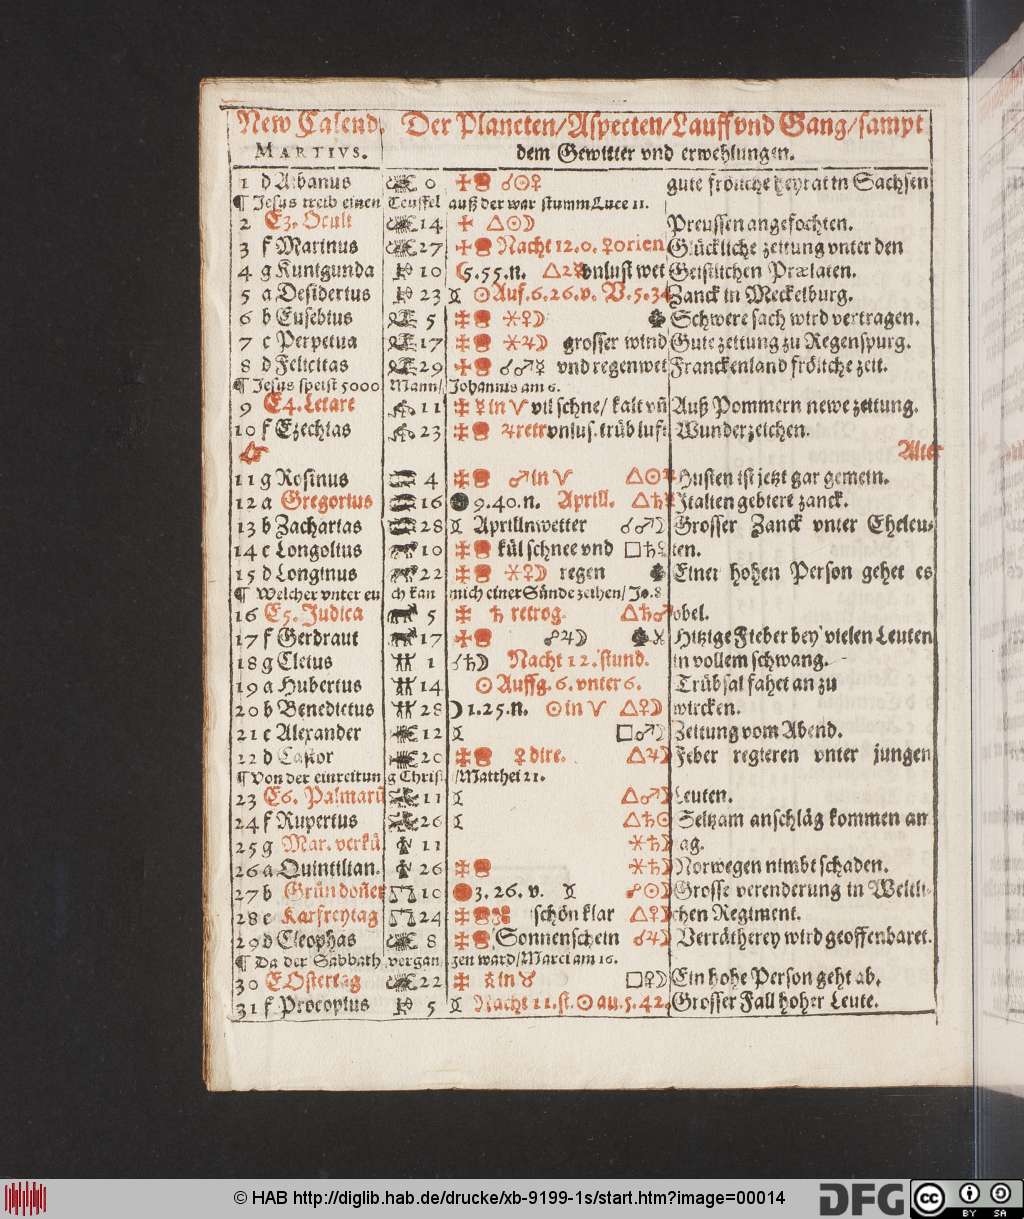 New Calend. Der Planeten/Aspecten/Lauff vnd Gang/sampt
MARTIVS. dem Gewitter vnd erwehlungen.
1 d Albanus 0 ☌☉♀ gute fröliche heyrat in Sachsen
¶ Jesus treib einen Teuffel auß der war stumm Luce 11.
2 E3. Oculi 14 △☉☽ Preussen angefochten.
3 f Marinus 27 Nacht 12.0. ♀orien Glückliche zeitung vnter den
4 g Kunigunda 10 5.55.n. vnlust wet Geistlichen Prælaten.
5 a Desiderius 23 ☉Auf.6.26.v. V.5.34 Zanck in Meckelburg.
6 b Eusebius 5 ⚹♀☽ Schwere sach wird vertragen.
7 c Perpetua 17 ⚹♃☽ grosser wind Gute zeitung zu Regenspurg.
8 d Felicitas 29 ☌♂☿ vnd regenwet Franckenland fröliche zeit.
¶ Jesus speist 5000 Mann/Johannis am 6.
9 E4. Letare 11 ☿in ♈ vil schne/ kalt vñ Auß Pommern newe zeitung.
10 f Ezechias 23 ♃retr vnlus. trüb luft Wunderzeichen.
Alter
11 g Rosinus 4 ♂in ♈ △☉ Husten ist jetzt gar gemein.
12 a Gregorius 16 9.40.n. Aprill. △♄ Italien gebiert zanck.
13 b Zacharias 28 Aprillnwetter ☌♂☽ Grosser Zanck vnter Eheleu-
14 c Longolius 10 kül schnee vnd □♄ ten.
15 d Longinus 22 ⚹♀☽ regen Einer hohen Person gehet es
¶ Welcher vnter euch kan mich einer Sünde zeihen/Jo.8
16 E5. Judica 5 ♄ retrog. △♄♂ obel.
17 f Gerdraut 17 ☍♃☽ Hitzige Fieber bey vielen Leuten
18 g Cletus 1 ☌♄☽ Nacht 12. stund. in vollem schwang.
19 a Hubertus 14 ☉Auffg. 6. vnter 6. Trübsal fahet an zu
20 b Benedictus 28 ☽1.25.n. ☉in ♈ △♀☽ wircken.
21 c Alexander 12 □♂☽ Zeitung vom Abend.
22 d Castor 20 ♀dire. △♃☽ Feber regieren vnter jungen
¶ Von der einreitung Christ./Matthei 21.
23 E6. Palmarū 11 △♂☽ Leuten.
24 f Rupertus 26 △♄☉ Seltzam anschläg kommen an
25 g Mar. verkü 11 ⚹♄☽ ag.
26 a Quintilian. 26 ⚹♄☽ Norwegen nimbt schaden.
27 b Gründoñer 10 3.26.v. ☍☉☽ Grosse verenderung in Weltli-
28 c Karfreytag 24 schön klar △♀☽ chen Regiment.
29 d Cleophas 8 Sonnenschein ☌♃☽ Verrätherey wird geoffenbaret.
¶ Da der Sabbath vergangen ward/Marci am 16.
30 E Ostertag 22 ☿in ♉ □♀☽ Ein hohe Person geht ab.
31 f Procopius 5 Nacht 11.st. ☉au.5.42. Grosser Fall hoher Leute.
© HAB http://diglib.hab.de/drucke/xb-9199-1s/start.htm?image=00014
DFG cc BY SA